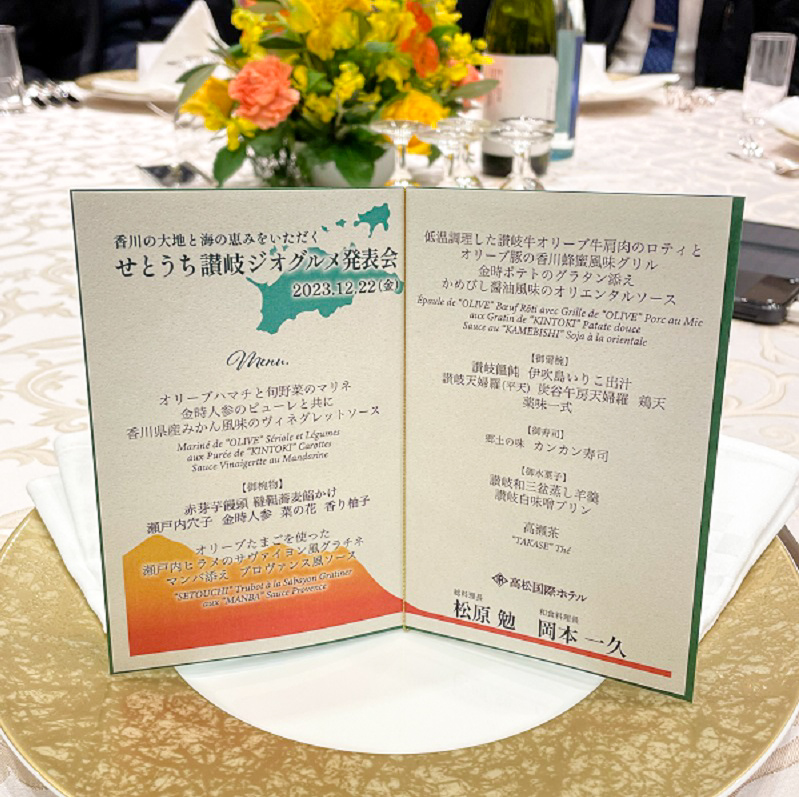 香川の大地と海の恵みをいただく
せとうち讃岐ジオグルメ発表会
2023.12.22(金)
Menu.
オリーブハマチと旬野菜のマリネ
金時人参のピューレと共に
香川県産みかん風味のヴィネグレットソース
Mariné de "OLIVE" Sériole et Légumes
aux Purée de "KINTOKI" Carottes
Sauce Vinaigertte au Mandarine
【御椀物】
赤芽芋饅頭 蕎麦餡かけ
瀬戸内穴子 金時人参 菜の花 香り柚子
オリーブたまごを使った
瀬戸内ヒラメのサヴァイヨン風グラチネ
マンバ添え プロヴァンス風ソース
"SETOUCHI" Trubot à la Sabayon Gratiner
aux "MANBA" Sauce Provence
低温調理した讃岐牛オリーブ牛肩肉のロティと
オリーブ豚の香川蜂蜜風味グリル
金時ポテトのグラタン添え
かめびし醤油風味のオリエンタルソース
Époule de "OLIVE" Bœuf Rôti avec Grille de "OLIVE" Porc au Mic
aux Gratin de "KINTOKI" Patate douce
Sauce au "KAMEBISHI" Soja à la orientale
讃岐饂飩 伊吹島いりこ出汁
讃岐天婦羅(平天) 炭谷午房天婦羅 鶏天
薬味一式
【御寿司】
郷土の味 カンカン寿司
【御水菓子】
讃岐和三盆蒸し羊羹
讃岐白味噌プリン
高瀬茶
"TAKASE" Thé
高松国際ホテル
総料理長
松原 勉
和食料理長
岡本 一久